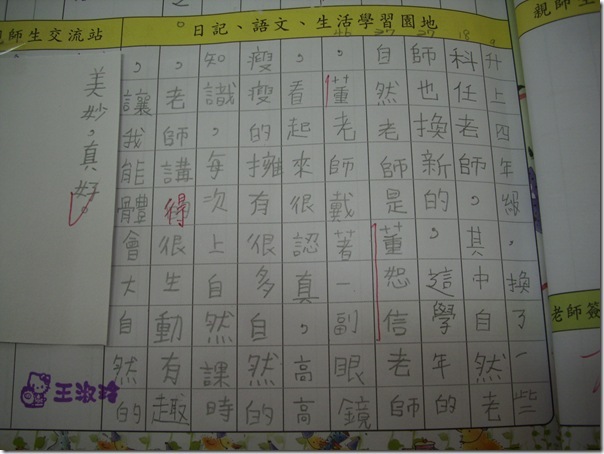 師生交流站
日記、語文、生活學習園地
親師生
升上四年級，換了一些
科任老師，其中自然老
師也換新的，這學年的
自然老師是董恕信老師
，董老師戴著一副眼鏡
，看起來很認真，高高
瘦瘦的擁有很多自然的
知識，每次上自然課時
，老師講得很生動有趣
，讓我能體會大自然的
美妙，真好。
老師簽
王淑玲